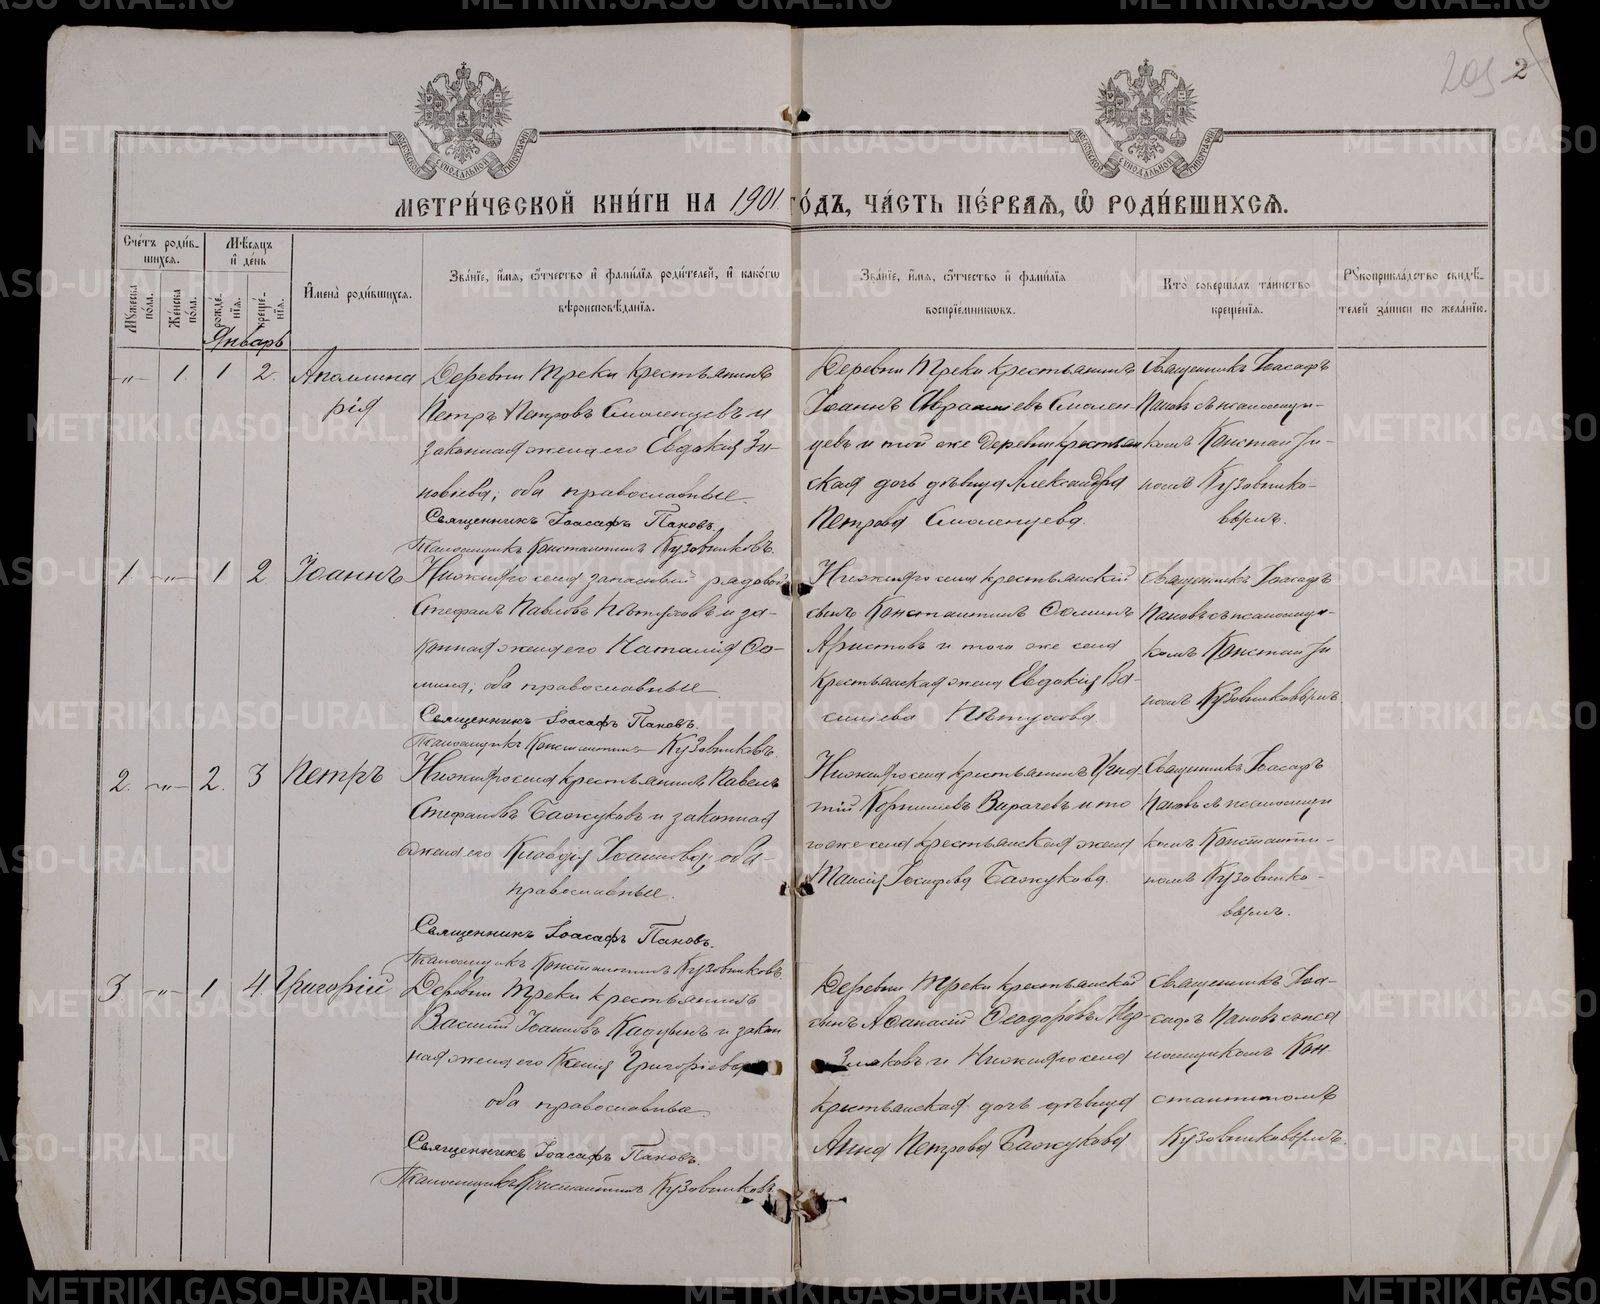 205 2
МЕТРИ́ЧЕСКОЙ КНИ́ГИ НА 1901 ГО́ДЪ, ЧА́СТЬ ПЕ́РВАЯ, Ѡ РОДИ́ВШИХСЯ.
Сче́тъ роди́в-
шихся.
Мꙋ́жеска по́ла.
Же́нска по́ла.
Мѣ́сяцъ и де́нь
рожде́нїя.
креще́нїя.
Январь
И҆мена̀ роди́вшихся.
Зва́нїе, и҆́мя, ѻ҆́тчество и҆ фами́лїя роди́телей, и҆ како́гѡ
вѣроисповѣ́данїя.
Зва́нїе, и҆́мя, ѻ҆́тчество и҆ фами́лїя
воспрїе́мникѡвъ.
Кто̀ соверша́лъ та́инство
креще́нїя.
Рꙋкоприкла́дство свидѣ́-
телей за́писи по жела́нїю.
-"- 1. 1 2. Аполлина
рія
Деревни Треки крестьянинъ
Петръ Петровъ Смоленцевъ и
законная жена его Евдокія Зи-
новьева; оба православные.
Священникъ Іоасафъ Пановъ.
Псаломщикъ Константинъ Кузовниковъ.
Деревни Треки крестьянинъ
Іоаннъ Авраміевъ Смолен-
цевъ и той же деревни крестьян
ская дочь дѣвица Александра
Петрова Смоленцева.
Священникъ Іоасафъ
Пановъ съ псаломщи-
комъ Константи-
номъ Кузовнико-
вымъ.
1. -"- 1 2 Іоаннъ
Нижняго села запасный рядовой
Стефанъ Павловъ Пѣтуховъ и за-
конная жена его Наталія Ѳо-
мина; оба православные.
Священникъ Іоасафъ Пановъ.
Псаломщикъ Константинъ Кузовниковъ.
Нижняго села крестьянскій
сынъ Константинъ Ѳоминъ
Аристовъ и того же села
крестьянская жена Евдокія Ва-
сильева Пѣтухова
Священникъ Іоасафъ
Пановъ съ псаломщи-
комъ Константи
номъ Кузовниковымъ
2. -"- 2. 3 Петръ
Нижняго села крестьянинъ Павелъ
Стефановъ Бажуковъ и законная
жена его Клавдія Іоаннова; оба
православные.
Священникъ Іоасафъ Пановъ.
Псаломщикъ Константинъ Кузовниковъ.
Нижняго села крестьянинъ Игна
тій Корниліевъ Варачевъ и то
го же села крестьянская жена
Таисія Іосифова Бажукова.
Священникъ Іоасафъ
Пановъ съ псаломщи
комъ Константи-
номъ Кузовнико-
вымъ.
3. -"- 1 4 Григорій
Деревни Треки крестьянинъ
Василій Іоанновъ Кадцынъ и закон
ная жена его Ксенія Григоріева
оба православные.
Священникъ Іоасафъ Пановъ.
Псаломщикъ Константинъ Кузовниковъ
Деревни Треки крестьянскій
сынъ Аѳанасій Ѳеодоровъ
и Нижняго села
крестьянская дочь дѣвица
Анна Петрова Бажукова
Священникъ Іоа-
сафъ Пановъ съ пса
ломщикомъ Кон
стантиномъ
Кузовниковымъ.
METRIKI.GASO-URAL.RU